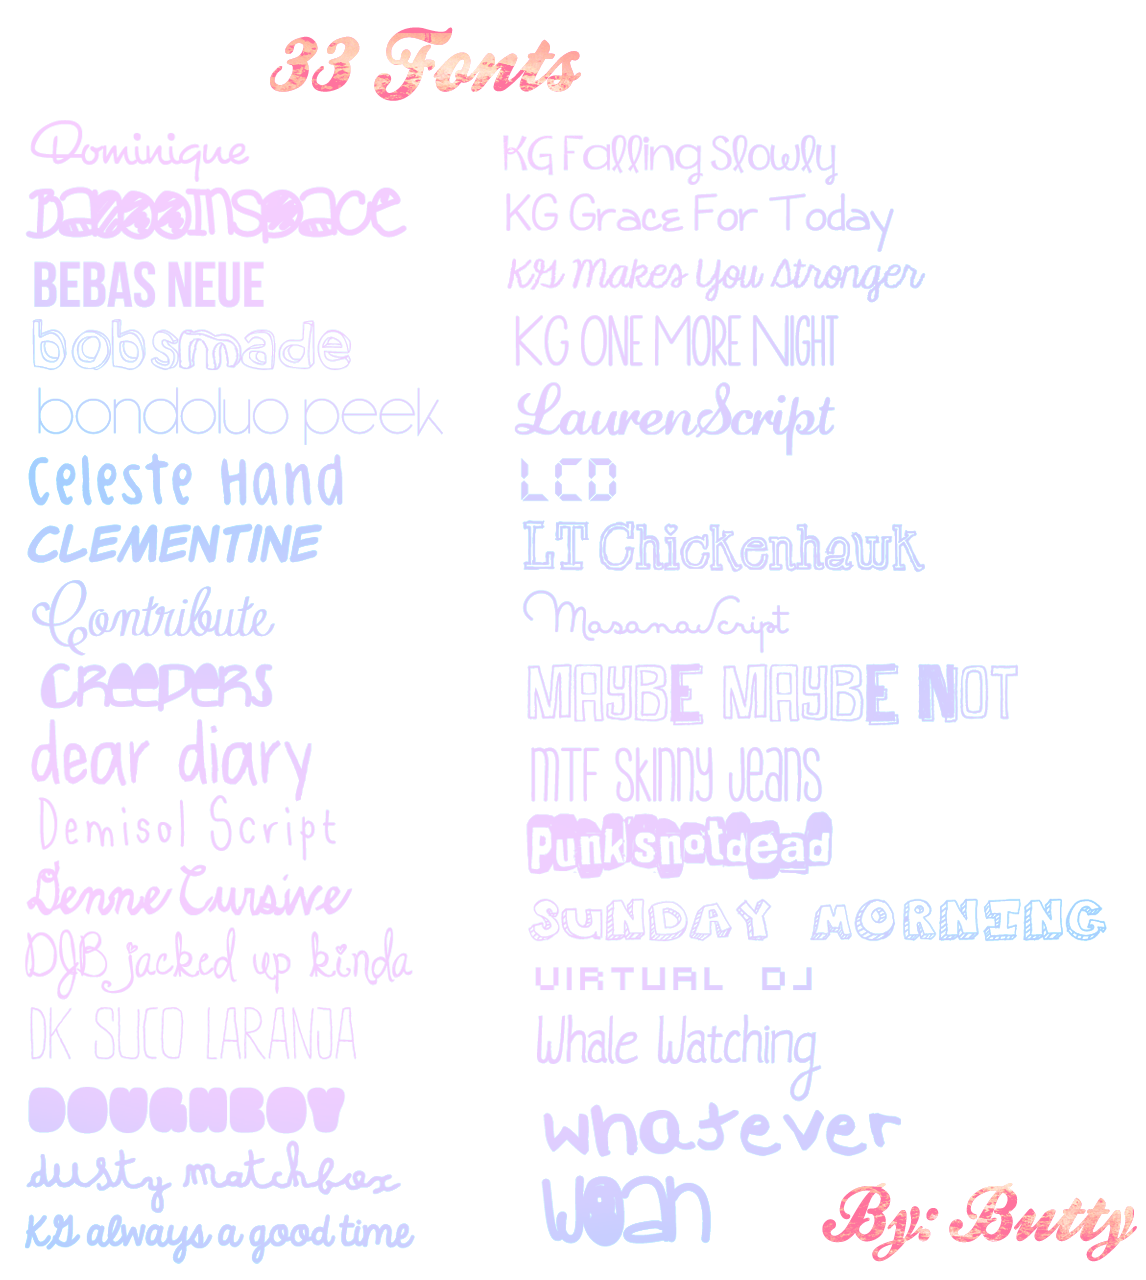 33 Fonts
Dominique
BazooInspace
BEBAS NEUE
bobsmade
bondoluo peek
Celeste Hand
CLEMENTINE
Contribute
CREEPERS
dear diary
Demisol Script
Jenne Cursive
DJB jacked up kinda
DK SUCO LARANJA
DOUGHBOY
dusty matchbox
KG always a good time
KG Falling Slowly
KG Grace For Today
KG Makes You Stronger
KG ONE MORE NIGHT
LaurenScript
LCD
LT Chickenhawk
MasanaScript
MAYBE MAYBE NOT
MTF Skinny Jeans
Punk'snotdead
SUNDAY MORNING
VIRTUAL DJ
Whale Watching
whatever
woan
By: Butty